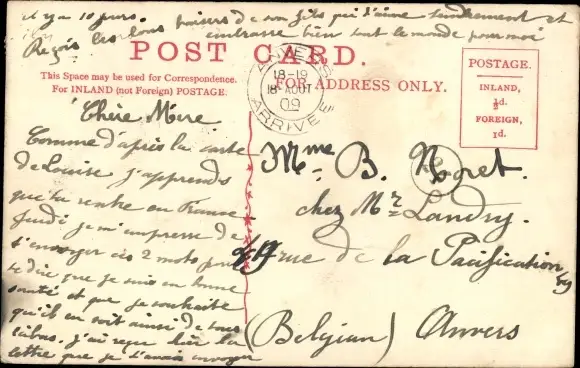 il y a 10 jours.
Reçois les bons baisers de son fils qui t'aime tendrement et
embrasse bien tout le monde pour moi
POST CARD.
This Space may be used for Correspondence.
For INLAND (not Foreign) POSTAGE.
FOR ADDRESS ONLY.
POSTAGE.
INLAND,
½d.
FOREIGN,
1d.
ANVERS
18-19
18 AOUT
09
ARRIVÉE
Chère Mère
Comme d'après la carte
de Louise j'apprends
que tu rentre en France
Jeudi je m'empresse de
t'envoyer ces 2 mots pour
te dire que je suis en bonne
santé et que je souhaite
qu'il en soit ainsi de tous
là bas. j'ai reçu hier la
lettre que je t'avais envoyer
Mme B. Noret.
chez Mr Landry.
rue de la Pacification
(Belgian) Anvers